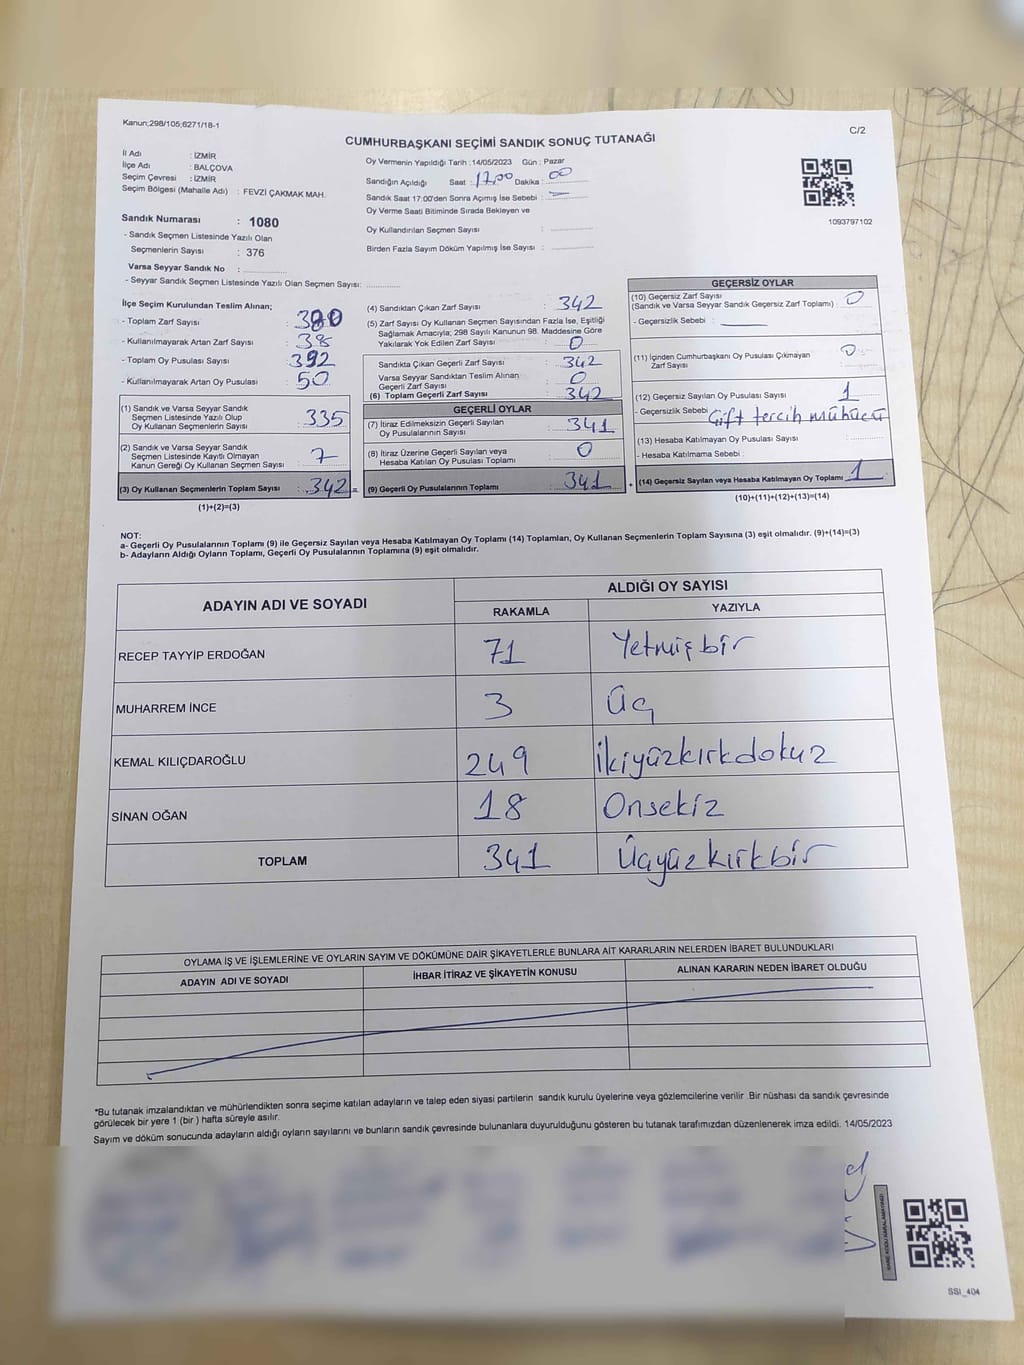 Kanun;298/105;6271/18-1
C/2
CUMHURBAŞKANI SEÇİMİ SANDIK SONUÇ TUTANAĞI
İl Adı : İZMİR
İlçe Adı : BALÇOVA
Seçim Çevresi : İZMİR
Seçim Bölgesi (Mahalle Adı) : FEVZİ ÇAKMAK MAH.
Sandık Numarası : 1080
- Sandık Seçmen Listesinde Yazılı Olan
Seçmenlerin Sayısı : 376
Varsa Seyyar Sandık No :
- Seyyar Sandık Seçmen Listesinde Yazılı Olan Seçmen Sayısı:
Oy Vermenin Yapıldığı Tarih :14/05/2023 Gün : Pazar
Sandığın Açıldığı Saat : 17,00 Dakika : 00
Sandık Saat 17:00'den Sonra Açımış İse Sebebi : –
Oy Verme Saati Bitiminde Sırada Bekleyen ve
Oy Kullandırılan Seçmen Sayısı :
Birden Fazla Sayım Döküm Yapılmış İse Sayısı :
1093797102
İlçe Seçim Kurulundan Teslim Alınan;
- Toplam Zarf Sayısı : 380
- Kullanılmayarak Artan Zarf Sayısı : 38
- Toplam Oy Pusulası Sayısı : 392
- Kullanılmayarak Artan Oy Pusulası : 50
(1) Sandık ve Varsa Seyyar Sandık
Seçmen Listesinde Yazılı Olup
Oy Kullanan Seçmenlerin Sayısı : 335
(2) Sandık ve Varsa Seyyar Sandık
Seçmen Listesinde Kayıtlı Olmayan
Kanun Gereği Oy Kullanan Seçmen Sayısı : 7
(3) Oy Kullanan Seçmenlerin Toplam Sayısı : 342 =
(1)+(2)=(3)
(4) Sandıktan Çıkan Zarf Sayısı : 342
(5) Zarf Sayısı Oy Kullanan Seçmen Sayısından Fazla İse, Eşitliği
Sağlamak Amacıyla; 298 Sayılı Kanunun 98. Maddesine Göre
Yakılarak Yok Edilen Zarf Sayısı : 0
Sandıkta Çıkan Geçerli Zarf Sayısı : 342
Varsa Seyyar Sandıktan Teslim Alınan
Geçerli Zarf Sayısı : 0
(6) Toplam Geçerli Zarf Sayısı : 342
GEÇERLİ OYLAR
(7) İtiraz Edilmeksizin Geçerli Sayılan
Oy Pusulalarının Sayısı : 341
(8) İtiraz Üzerine Geçerli Sayılan veya
Hesaba Katılan Oy Pusulası Toplamı : 0
(9) Geçerli Oy Pusulalarının Toplamı : 341 +
GEÇERSİZ OYLAR
(10) Geçersiz Zarf Sayısı
(Sandık ve Varsa Seyyar Sandık Geçersiz Zarf Toplamı) : 0
- Geçersizlik Sebebi :
(11) İçinden Cumhurbaşkanı Oy Pusulası Çıkmayan
Zarf Sayısı : 0
(12) Geçersiz Sayılan Oy Pusulası Sayısı : 1
- Geçersizlik Sebebi : Çift tercih mühürü
(13) Hesaba Katılmayan Oy Pusulası Sayısı :
- Hesaba Katılmama Sebebi :
(14) Geçersiz Sayılan veya Hesaba Katılmayan Oy Toplamı : 1
(10)+(11)+(12)+(13)=(14)
NOT:
a- Geçerli Oy Pusulalarının Toplamı (9) ile Geçersiz Sayılan veya Hesaba Katılmayan Oy Toplamı (14) Toplamları, Oy Kullanan Seçmenlerin Toplam Sayısına (3) eşit olmalıdır. (9)+(14)=(3)
b- Adayların Aldığı Oyların Toplamı, Geçerli Oy Pusulalarının Toplamına (9) eşit olmalıdır.
ADAYIN ADI VE SOYADI
ALDIĞI OY SAYISI
RAKAMLA YAZIYLA
RECEP TAYYİP ERDOĞAN 71 Yetmişbir
MUHARREM İNCE 3 Üç
KEMAL KILIÇDAROĞLU 249 İkiyüzkırkdokuz
SİNAN OĞAN 18 Onsekiz
TOPLAM 341 Üçyüzkırkbir
OYLAMA İŞ VE İŞLEMLERİNE VE OYLARIN SAYIM VE DÖKÜMÜNE DAİR ŞİKAYETLERLE BUNLARA AİT KARARLARIN NELERDEN İBARET BULUNDUKLARI
ADAYIN ADI VE SOYADI İHBAR İTİRAZ VE ŞİKAYETİN KONUSU ALINAN KARARIN NEDEN İBARET OLDUĞU
*Bu tutanak imzalandıktan ve mühürlendikten sonra seçime katılan adayların ve talep eden siyasi partilerin sandık kurulu üyelerine veya gözlemcilerine verilir .Bir nüshası da sandık çevresinde
görülecek bir yere 1 (bir ) hafta süreyle asılır.
Sayım ve döküm sonucunda adayların aldığı oyların sayılarını ve bunların sandık çevresinde bulunanlara duyurulduğunu gösteren bu tutanak tarafımızdan düzenlenerek imza edildi. 14/05/2023
KARE KODU KARALAMAYINIZ!
SSI_404